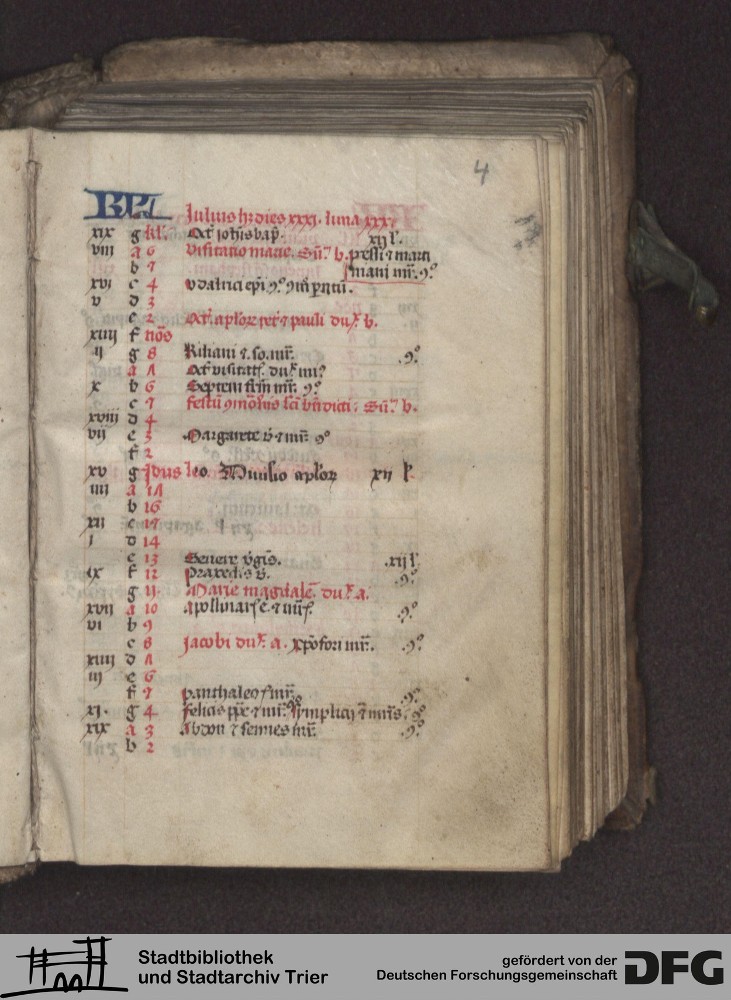 4
KL Julius hʒ dies xxxj. luna xxx.
xix g kl'. Oct' johīs bap̄. xij l'.
viii A 6 Visitatio marie. Sū. b. p̄cessi ⁊ marti
b 5 niani m̄r. 9º
xvi c 4 Vdalrici ep̄i 9º
v d 3
e 2 Oct' aplōꝝ pet' ⁊ pauli du. b.
xiii f nōs
ii g 8 Kiliani ⁊ so. m̄r. 9º
A 7 Oct' visitat'. du. mi?
x b 6 Septem fr̄m m̄r. 9º
c 5 festū scī bn̄dicti. Sū. b.
xviii d 4
vii e 3 Margarete v̄ ⁊ m̄r. 9º
f 2
xv g Jdus Divisio aplōꝝ xij l'.
iiii A 17
b 16
xii c 15
i d 14
e 13 v̄gīs. xij l'.
ix f 12 praxedis v̄. 9º
g 11 Marie magdalē. du. a.
xvii A 10 apollinaris e. ⁊ m̄r. 9º
vi b 9
c 8 Jacobi du. a. xp̄ofori m̄r. 9º
xiiii d 7
iii e 6
f 5 panthaleonis m̄r. 9º
xi. g 4 felicis pp̄e ⁊ m̄r. symplicij ⁊ m̄r̄s. 9º
xix A 3 Abdon ⁊ sennes m̄r. 9º
b 2
Stadtbibliothek
und Stadtarchiv Trier
gefördert von der
Deutschen Forschungsgemeinschaft
DFG